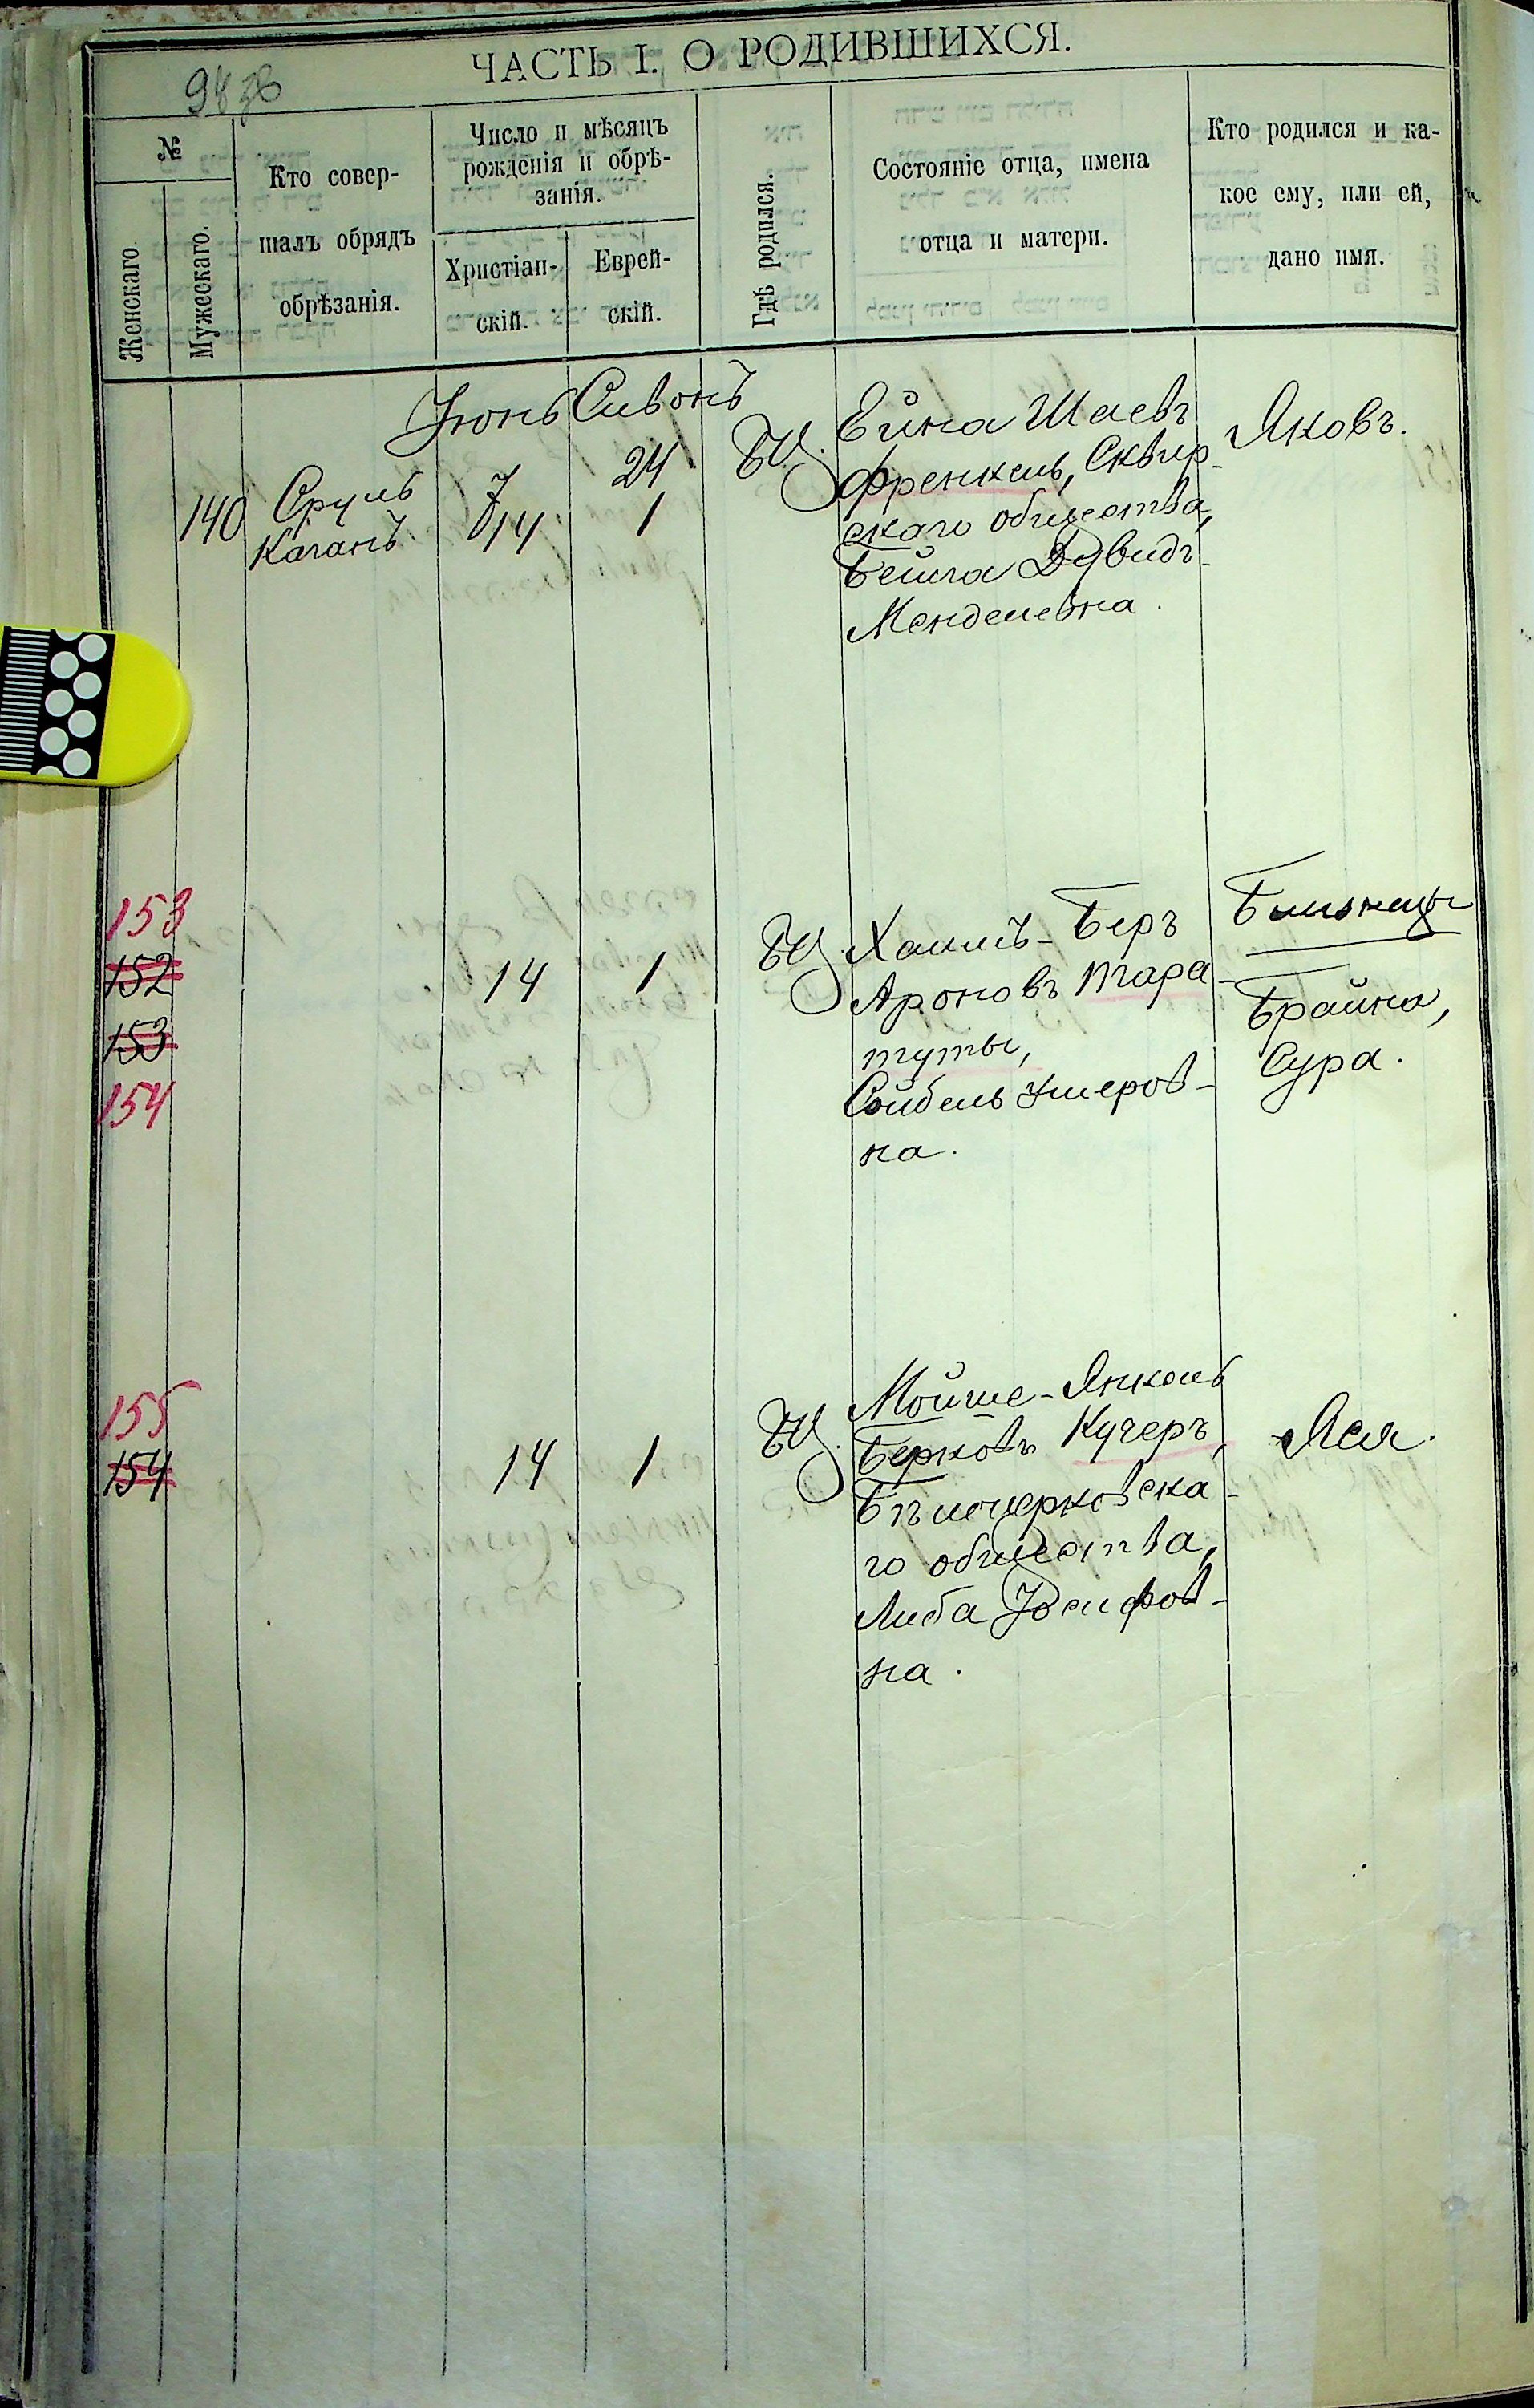 ЧАСТЬ I. О РОДИВШИХСЯ.
№
Женскаго
Мужескаго.
Кто совер-
шалъ обрядъ
обрѣзанія.
Число и мѣсяцъ
рожденія и обрѣ-
занія.
Христіан-
скій.
Еврей-
скій.
Гдѣ родился.
Состояніе отца, имена
отца и матери.
Кто родился и ка-
кое ему, или ей,
дано имя.
Іюнь Сивонъ
140
Сруль
Каганъ
7
14
24
1
БЦ.
Ейна Шаевъ
Френкель, Сквир-
скаго общества,
Бейла Дувидъ-
Менделевна.
Яковъ.
153
152
153
154
14
1
БЦ.
Хаимъ-Беръ
Ароновъ Тара-
туты,
Сойбель Умеров-
на.
Близнецы
Брайна,
Сура.
155
154
14
1
БЦ.
Мойше-Янкель
Берковъ Кучеръ,
Бѣлоцерковска-
го общества,
Либа Іосифов-
на.
Ася.